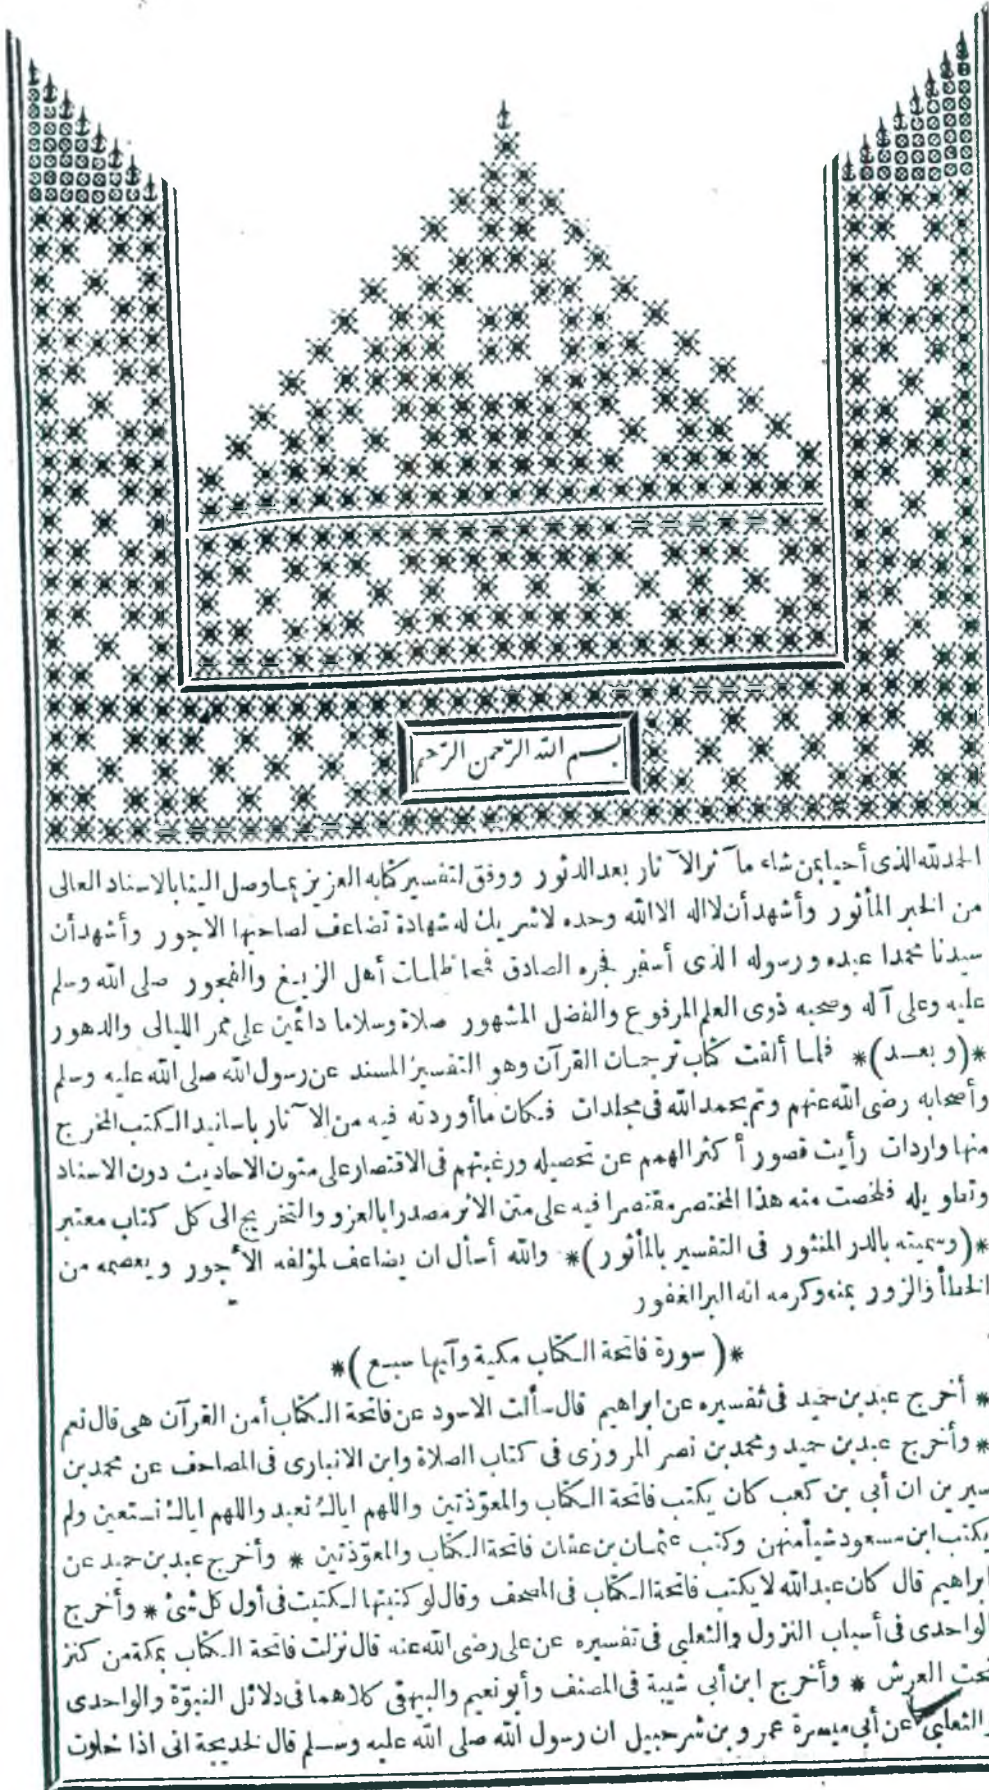 بسم الله الرحمن الرحيم
الحمد لله الذى أحيا بمن شاء مآثر الآثار بعد الدثور ووفق لتفسير كتابه العزيز بما وصل الينا بالاسناد العالى
من الخبر المأثور وأشهد أن لا اله الا الله وحده لا شريك له شهادة تضاعف لصاحبها الاجور وأشهد أن
سيدنا محمدا عبده ورسوله الذى أسفر فجره الصادق فمحا ظلمات أهل الزيغ والفجور صلى الله وسلم
عليه وعلى آله وصحبه ذوى العلم المرفوع والفضل المشهور صلاة وسلاما دائمين على ممر الليالى والدهور
*(وبعد)* فلما ألفت كتاب ترجمان القرآن وهو التفسير المسند عن رسول الله صلى الله عليه وسلم
وأصحابه رضى الله عنهم وتم بحمد الله فى مجلدات فكان ما أوردته فيه من الآثار باسانيد الكتب المخرج
منها واردات رأيت قصور أكثر الهمم عن تحصيله ورغبتهم فى الاقتصار على متون الاحاديث دون الاسناد
وتطويله فلخصت منه هذا المختصر مقتصرا فيه على متن الاثر مصدرا بالعزو والتخريج الى كل كتاب معتبر
*(وسميته بالدر المنثور فى التفسير بالمأثور)* والله أسأل ان يضاعف لمؤلفه الأجور ويعصمه من
الخطأ والزور بمنه وكرمه انه البر الغفور
*(سورة فاتحة الكتاب مكية وآيها سبع)*
* أخرج عبد بن حميد فى تفسيره عن ابراهيم قال سألت الاسود عن فاتحة الكتاب أمن القرآن هى قال نعم
* وأخرج عبد بن حميد ومحمد بن نصر المروزى فى كتاب الصلاة وابن الانبارى فى المصاحف عن محمد بن
سيرين ان أبى بن كعب كان يكتب فاتحة الكتاب والمعوّذتين واللهم اياك نعبد واللهم اياك نستعين ولم
يكتب ابن مسعود شيأ منهن وكتب عثمان بن عفان فاتحة الكتاب والمعوّذتين * وأخرج عبد بن حميد عن
ابراهيم قال كان عبد الله لا يكتب فاتحة الكتاب فى المصحف وقال لو كتبتها لكتبت فى أول كل شئ * وأخرج
الواحدى فى أسباب النزول والثعلبى فى تفسيره عن على رضى الله عنه قال نزلت فاتحة الكتاب بمكة من كنز
تحت العرش * وأخرج ابن أبى شيبة فى المصنف وأبو نعيم والبيهقى كلاهما فى دلائل النبوّة والواحدى
والثعلبى عن أبى ميسرة عمرو بن شرحبيل ان رسول الله صلى الله عليه وسلم قال لخديجة انى اذا خلوت